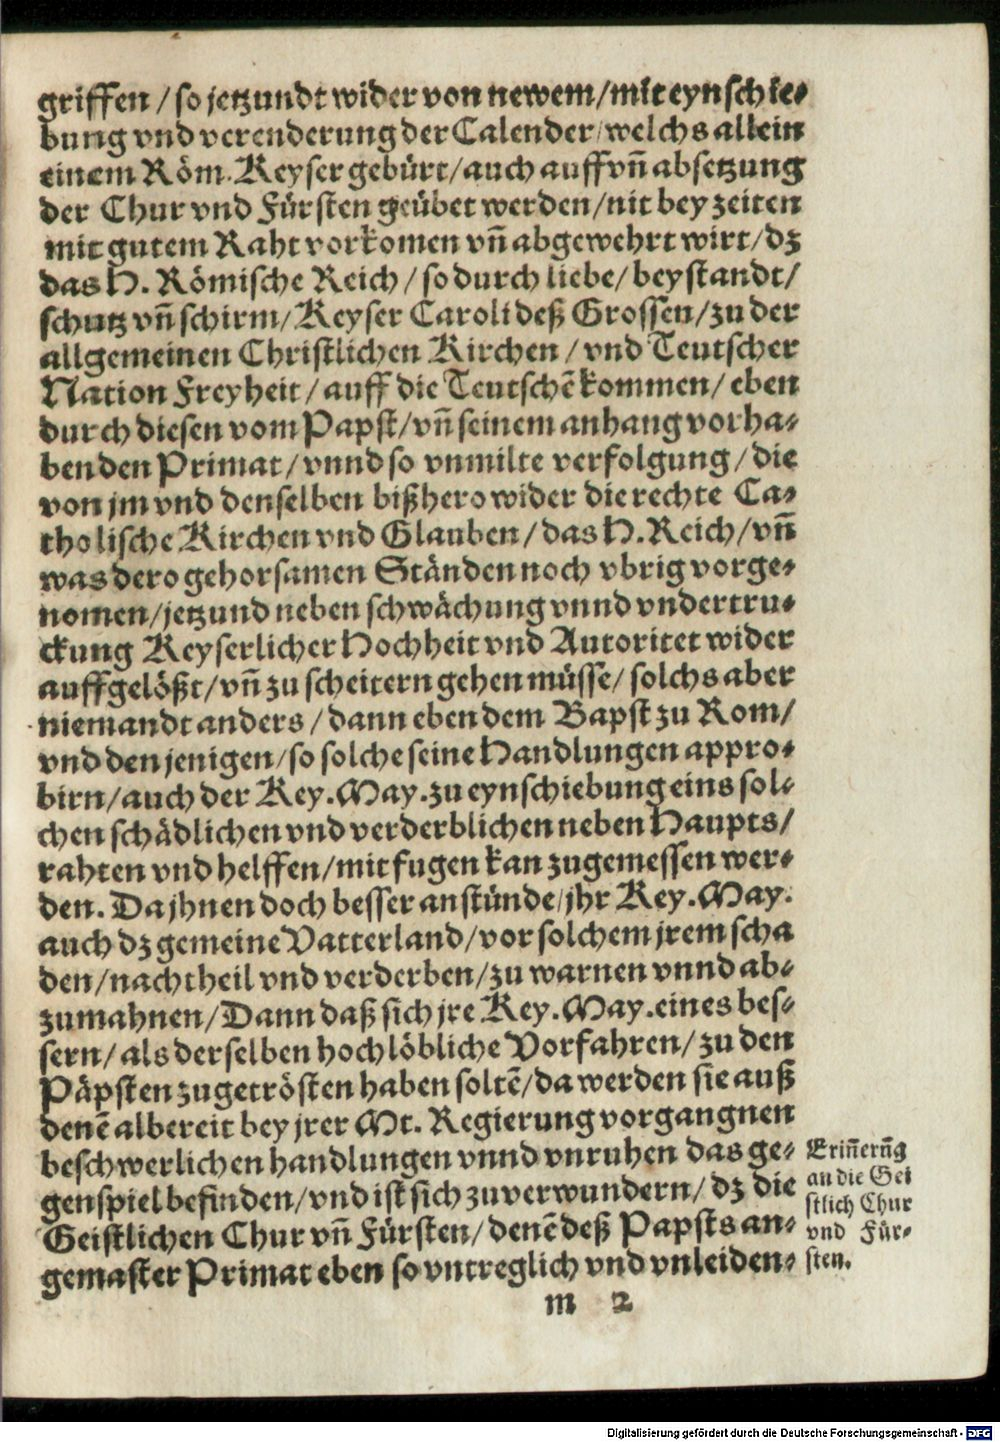 griffen / so jetzundt wider von newem / mit eynschie⸗
bung vnd verenderung der Calender / welchs allein
einem Röm. Keyser gebürt / auch auff vñ absetzung
der Chur vnd Fürsten geübet werden / nit bey zeiten
mit gutem Raht vorkomen vñ abgewehrt wirt / dz
das H. Römische Reich / so durch liebe / beystandt /
schutz vñ schirm / Keyser Caroli deß Grossen / zu der
allgemeinen Christlichen Kirchen / vnd Teutscher
Nation Freyheit / auff die Teutschẽ kommen / eben
durch diesen vom Papst / vñ seinem anhang vorha⸗
benden Primat / vnnd so vnmilte verfolgung / die
von jm vnd denselben bißhero wider die rechte Ca⸗
tholische Kirchen vnd Glauben / das H. Reich / vñ
was dero gehorsamen Ständen noch vbrig vorge⸗
nomen / jetzund neben schwächung vnnd vndertru⸗
ckung Keyserlicher Hochheit vnd Autoritet wider
auffgelößt / vñ zu scheitern gehen müsse / solchs aber
niemandt anders / dann eben dem Bapst zu Rom /
vnd den jenigen / so solche seine Handlungen appro⸗
birn / auch der Key. May. zu eynschiebung eins sol⸗
chen schädlichen vnd verderblichen neben Haupts /
rahten vnd helffen / mit fugen kan zugemessen wer⸗
den. Da jhnen doch besser anstünde / jhr Key. May.
auch dz gemeine Vatterland / vor solchem jrem scha
den / nachtheil vnd verderben / zu warnen vnnd ab⸗
zumahnen / Dann daß sich jre Key. May. eines bes⸗
sern / als derselben hochlöbliche Vorfahren / zu den
Päpsten zugetrösten haben soltẽ / da werden sie auß
denẽ albereit bey jrer Mt. Regierung vorgangnen
beschwerlichen handlungen vnnd vnruhen das ge⸗
genspiel befinden / vnd ist sich zuverwundern / dz die
Geistlichen Chur vñ Fürsten / denẽ deß Papsts an⸗
gemaster Primat eben so vntreglich vnd vnleiden⸗
Eriñerũg
an die Gei
stlich Chur
vnd Für⸗
sten.
m 2
Digitalisierung gefördert durch die Deutsche Forschungsgemeinschaft - DFG